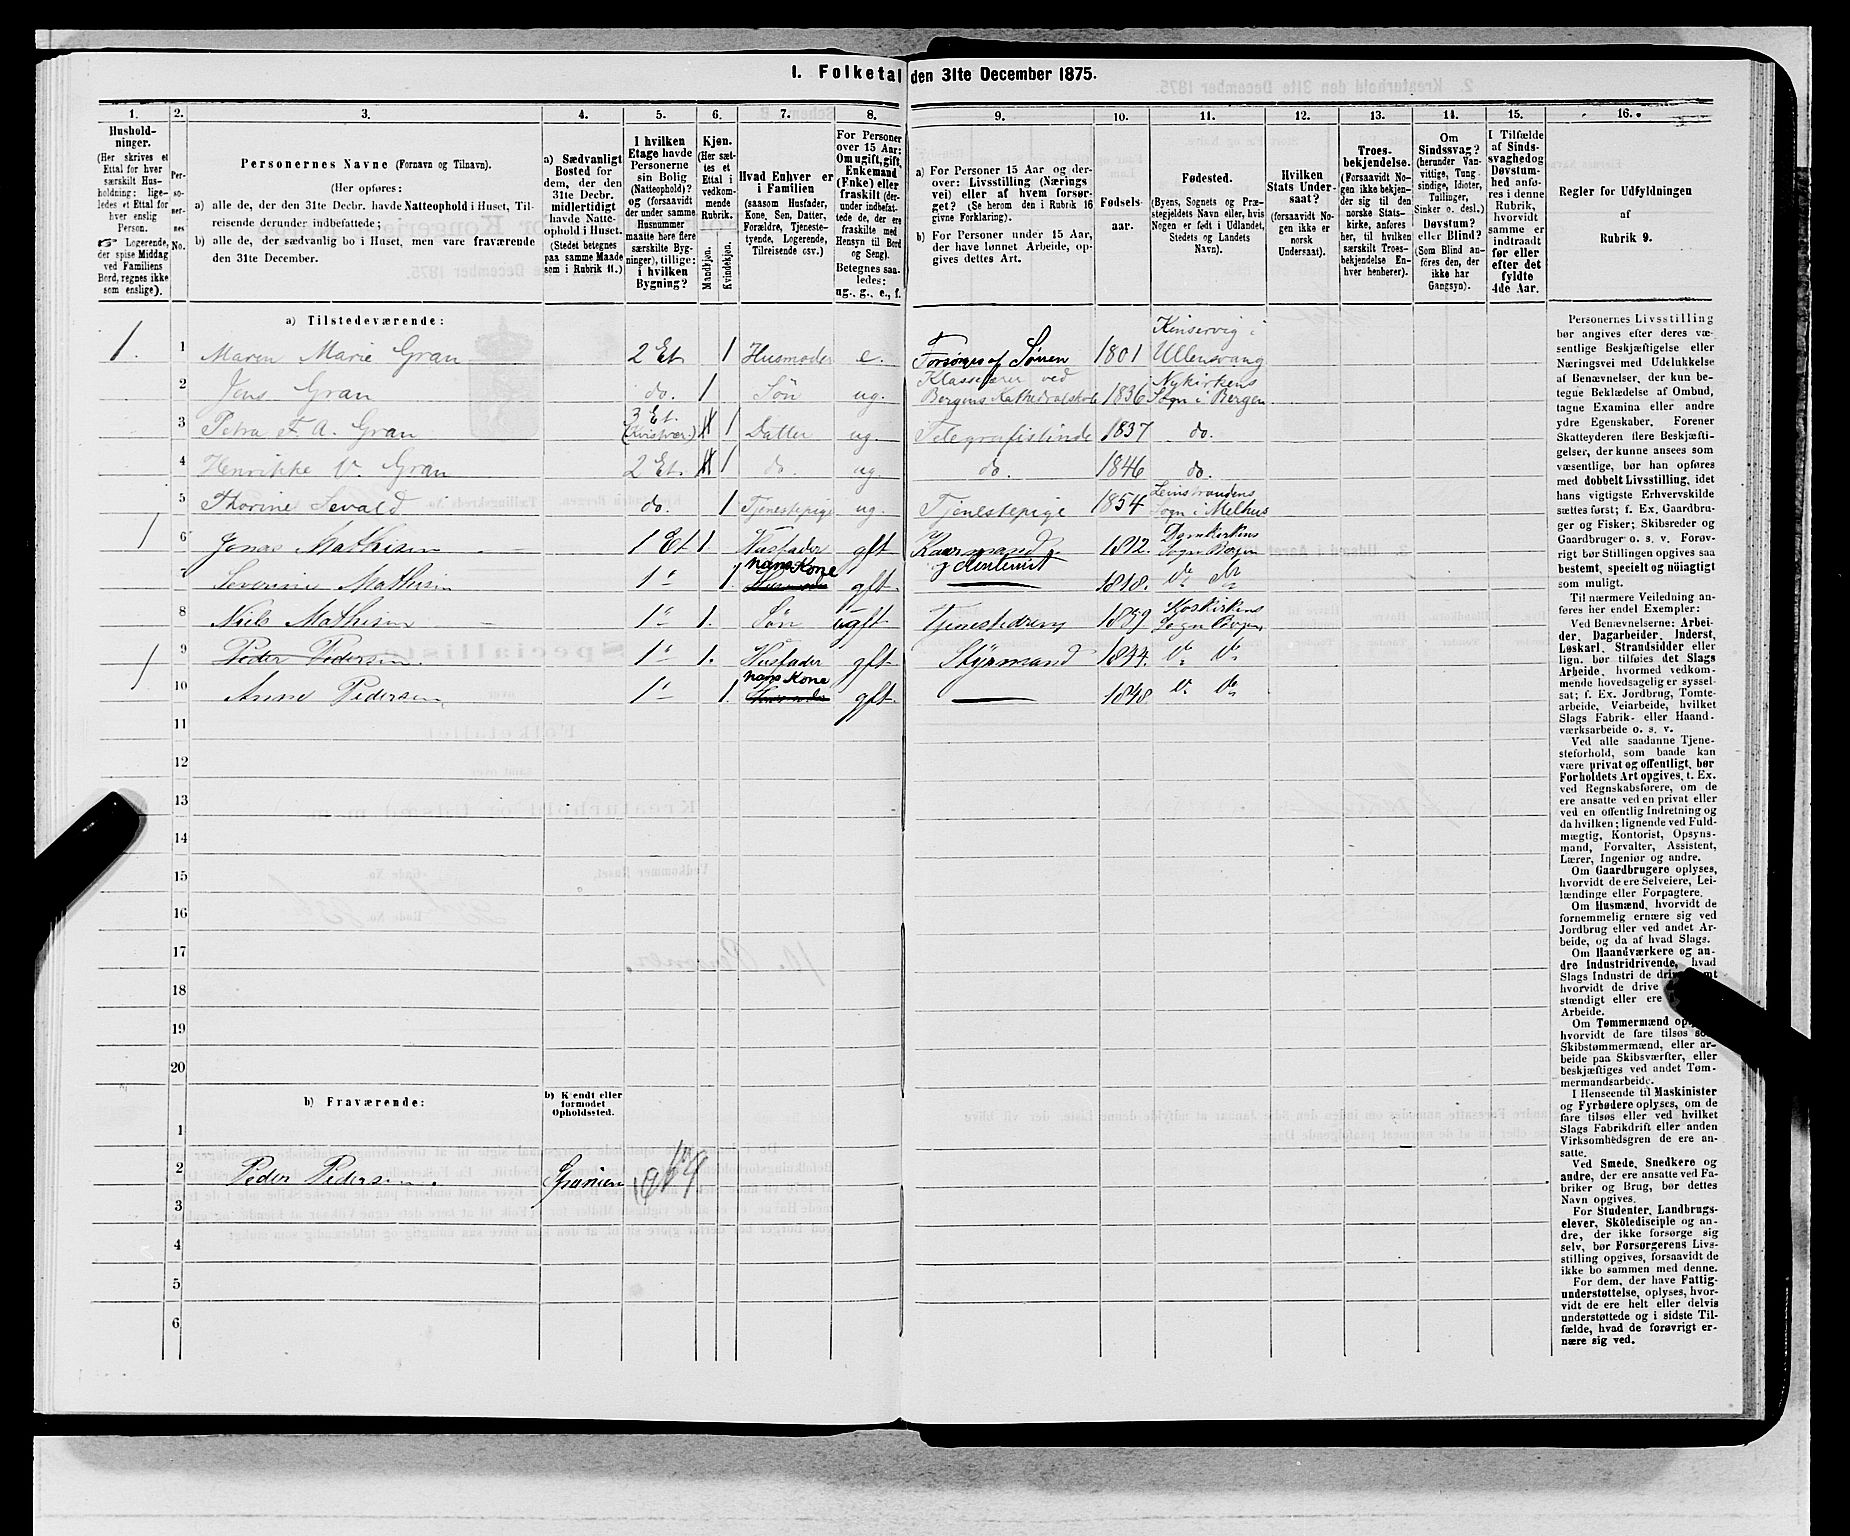 1. Folketal den 31te December 1875.
1. 2. 3. 4. 5. 6. 7. 8. 9. 10. 11. 12. 13. 14. 15. 16.
Hushold-
ninger.
(Her skrives et
Ettal for hver
særskilt Hus-
holdning; lige-
ledes et Ettal for
hver enslig
Person.
☞ Logerende,
der spise Middag
ved Familiens
Bord, regnes ikke
som enslige).
Per-
so-
ner-
nes
No.
Personernes Navne (Fornavn og Tilnavn).
(Her opføres:
a) alle de, der den 31te Decbr. havde Natteophold i Huset, Til-
reisende derunder indbefattede;
b) alle de, der sædvanlig bo i Huset, men vare fraværende
den 31te December.
a) Sædvanligt
Bosted for
dem, der den
31te Decbr.
midlertidigt
havde Natte-
ophold i Huset.
(Stedet betegnes
paa samme Maade
som i Rubrik 11.)
I hvilken
Etage havde
Personerne
sin Bolig
(Natteophold)?
og (forsaavidt
der under samme
Husnummer
maatte høre flere
særskilte Byg-
ninger), tillige:
i hvilken
Bygning?
Kjøn.
(Her sæt-
tes et
Ettal i
vedkom-
mende
Rubrik.
Mandkjøn.
Kvindekjøn.
Hvad Enhver er
i Familien
(saasom Husfader,
Kone, Søn, Datter,
Forældre, Tjeneste-
tyende, Logerende,
Tilreisende osv.)
For Personer
over 15 Aar:
Om ugift, gift,
Enkemand
(Enke) eller
fraskilt (der-
under indbefat-
tede de, der ere
fraskilte med
Hensyn til Bord
og Seng).
Betegnes saa-
ledes:
ug., g., e., f.
a) For Personer 15 Aar og der-
over: Livsstilling (Nærings
vei) eller af hvem forsør-
get? (Se herom den i Rubrik 16
givne Forklaring).
b) For Personer under 15 Aar,
der have lønnet Arbeide, op-
gives dettes Art.
Fødsels-
aar.
Fødested.
(Byens, Sognets og Præ-
stegjeldets Navn eller, hvis
Nogen er født i Udlandet,
Stedets og Landets
Navn).
Hvilken
Stats Under-
saat?
(forsaavidt No-
gen ikke er
norsk
Undersaat).
Troes-
bekjendelse.
(Forsaavidt No-
gen ikke bekjen-
der sig til den
norske Stats-
kirke, anføres
her, til hvilken
særskilt Troes-
bekjendelse En-
hver henhører).
Om
Sindssvag?
(herunder Van-
vittige, Tung-
sindige, Idioter,
Tullinger,
Sinker o. desl.)
Døvstum?
eller Blind?
(Som Blind an-
føres den, der
ikke har
Gangsyn).
I Tilfælde
af Sinds-
svaghed og
Døvstum-
hed anfø-
res i denne
Rubrik,
hvorvidt
samme er
indtraadt
før eller
efter det
fyldte
4de Aar.
Regler for Udfyldningen
af
Rubrik 9.
a) Tilstedeværende:
1. 1 Maren Marie Gran 2 Et 1 Husmoder e. Forsørges af Sønen 1801 Kinservig i Ullensvang
2 Jens Gran do. 1 Søn ug. Klasselærer ved Bergens Kathedralskole 1836 Nykirkens Sogn i Bergen
3 Petra F. A. Gran 3 Et. (Kvistvær.) 1 Datter ug. Telegrafistinde 1837 do.
4 Henrikke V. Gran 2 Et. 1 do. ug. do. 1846 do.
5 Thorine Sevald do. 1 Tjenestepige ug. Tjenestepige 1854 Leinstrandens Sogn i Melhus
1 6 Jonas Mathisen 1 Et 1. Husfader gft 1812. Domkirkens Sogn Bergen
7 Severine Mathisen 1" 1. hans Kone Husmoder gft. 1818. do do
8 Niels Mathisen 1" 1. Søn ugft Tjenestedreng 1859 Korskirkens Sogn Bergen
1 9 Peder Pedersen 1" 1. Husfader gft Styrmand 1844. do do
10 Anne Pedersen 1" 1. hans Kone Husmoder gft. 1848. do do
11
12
13
14
15
16
17
18
19
20
b) Fraværende:
b) Kjendt eller
formodet
Opholdssted.
1
2 Peder Pedersen. Spanien
3
4
5
6
Personernes Livsstilling
bør angives efter deres væ-
sentlige Beskjæftigelse eller
Næringsvei med Udelukkelse
af Benævnelser, der kun be-
tegne Beklædelse af Ombud,
tagne Examina eller andre
ydre Egenskaber. Forener
Skatteyderen flere Beskjæfti-
gelser, der kunne ansees som
væsentlige, bør han opføres
med dobbelt Livsstilling, idet
hans vigtigste Erhvervskilde
sættes først; f. Ex. Gaardbru-
ger og Fisker; Skibsreder og
Gaardbruger o. s. v. Forøv-
rigt bør Stillingen opgives saa
bestemt, specielt og nöiagtigt
som muligt.
Til nærmere Veiledning an-
føres her endel Exempler:
Ved Benævnelserne: Arbei-
der, Dagarbeider, Inderst,
Løskarl, Strandsidder eller
lign. bør tilføies det Slags
Arbeide, hvormed vedkom-
mende hovedsagelig er syssel-
sat; f. Ex. Jordbrug, Tomte-
arbeide, Veiarbeide, hvilket
Slags Fabrik- eller Haand-
værksarbeide o. s. v.
Ved alle saadanne Tjene-
steforhold, som baade kan
være privat og offentligt, bør
Forholdets Art opgives, t. Ex.
ved Regnskabsførere, om de
ere ansatte ved en privat eller
ved en offentlig Indretning og
da hvilken; lignende ved Fuld-
mægtig, Kontorist, Opsyns-
mand, Forvalter, Assistent,
Lærer, Ingeniør og andre.
Om Gaardbrugere oplyses,
hvorvidt de ere Selveiere, Lei-
lændinge eller Forpagtere.
Om Husmænd, hvorvidt de
fornemmelig ernære sig ved
Jordbrug eller ved andet Ar-
beide, og da af hvad Slags.
Om Haandværkere og an-
dre Industridrivende, hvad
Slags Industri de
hvorvidt de drive
stændigt eller ere
Arbeide.
Om Tømmermænd
hvorvidt de fare tilsøs
Skibstømmermænd, eller ar-
beide paa Skibsværfter, eller
beskjæftiges ved andet Tøm-
mermandsarbeide.
I Henseende til Maskinister
og Fyrbødere oplyses, om de
fare tilsøs eller ved hvilket
Slags Fabrikdrift eller anden
Virksomhedsgren de ere an-
satte.
Ved Smede, Snedkere og
andre, der ere ansatte ved Fa-
briker og Brug, bør dettes
Navn opgives.
For Studenter, Landbrugs-
elever, Skoledisciple og an-
dre, der ikke forsørge sig
selv, bør Forsørgerens Livs-
stilling opgives, forsaavidt de
ikke bo sammen med denne.
For dem, der have Fattig-
understøttelse, oplyses, hvor-
vidt de ere helt eller delvis
understøttede og i sidste Til-
fælde, hvad de forøvrigt er-
nære sig ved.